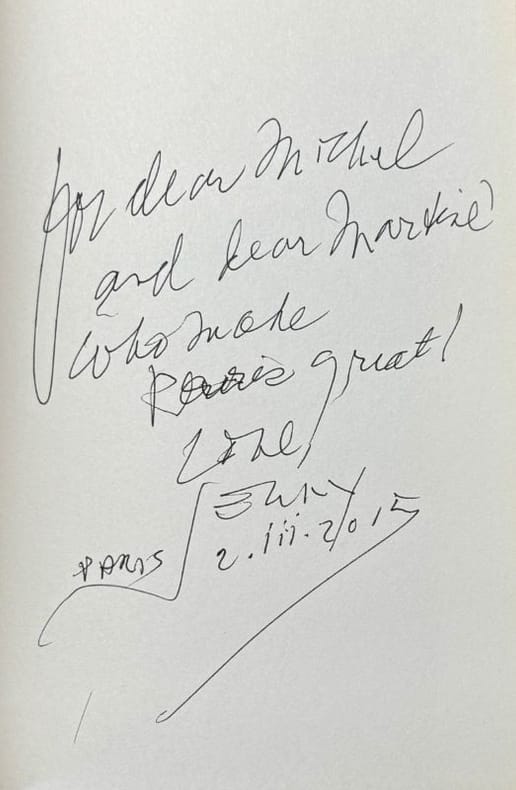 for dear Michel
and dear Martine
who make
Paris great!
Love,
Jerry
PARIS 2.iii.2015